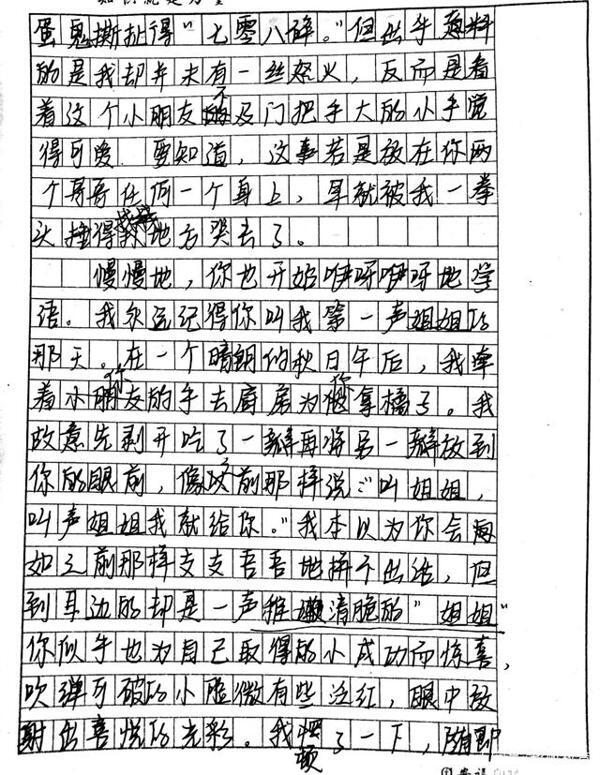 蛋鬼撕扯得"七零八碎。"但出乎意料
的是我却并未有一丝怒火，反而是看
着这个小朋友不及门把手大的小手觉
得可爱 要知道，这事若是放在你两
个哥哥任何一个身上，早就被我一拳
头捶得找地方哭去了。
慢慢地，你也开始咿呀咿呀地学
语。我永远记得你叫我第一声姐姐的
那天。在一个晴朗的秋日午后，我牵
着小朋友你的手去厨房为你拿橘子。我
故意先剥开吃了一瓣再将另一瓣放到
你的眼前，像以前那样说："叫姐姐，
叫声姐姐我就给你。"我本以为你会
如之前那样支支吾吾地拼不出话，但
到耳边的却是一声稚嫩清脆的"姐姐"
你似乎也为自己取得的小成功而惊喜，
吹弹可破的小脸微有些泛红，眼中放
射出喜悦的光彩。我顿了一下，随即